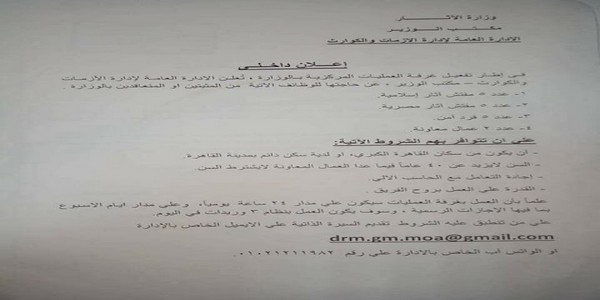 وزارة الآثـــــار
مكتـب الـوزيـر
الإدارة العامة لإدارة الأزمات والكوارث
إعـلان داخـلـى
فى إطار تفعيل غرفة العمليات المركزية بالوزارة ، تعلن الادارة العامة لإدارة الأزمات
والكوارث – مكتب الوزير ، عن حاجتها للوظائف الآتية من المثبتين أو المتعاقدين بالوزارة .
١- عدد ٥ مفتش آثار إسلامية.
٢- عدد ٥ مفتش آثار مصرية.
٣- عدد ٥ فرد أمن.
٤- عدد ٢ عمال معاونة.
علي ان تتوافر بهم الشروط الآتية:
- ان يكون من سكان القاهرة الكبري، او لدية سكن دائم بمدينة القاهرة.
- السن لايزيد عن ٤٠ عاماً فيما عدا العمال المعاونة لايشترط السن.
- إجادة التعامل مع الحاسب الآلي.
- القدرة علي العمل بروح الفريق.
علماً بأن العمل بغرفة العمليات سيكون علي مدار ٢٤ ساعة يومياً، وعلي مدار ايام الاسبوع
بما فيها الإجازات الرسمية ، وسوف يكون العمل بنظام ٣ ورديات في اليوم.
علي من تنطبق عليه الشروط تقديم السيرة الذاتية علي الايميل الخاص بالإدارة
drm.gm.moa@gmail.com
او الواتس آب الخاص بالإدارة علي رقم ٠١٠٢١٢١١٩٨٢